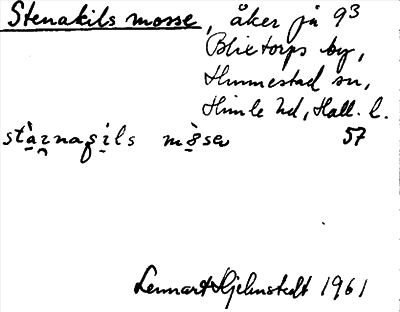 Stenakils mosse, åker på 93
Blixtorps by,
Hunnestad sn,
Himle hd, Hall. l.
57
Lennart Hjelmstedt 1961